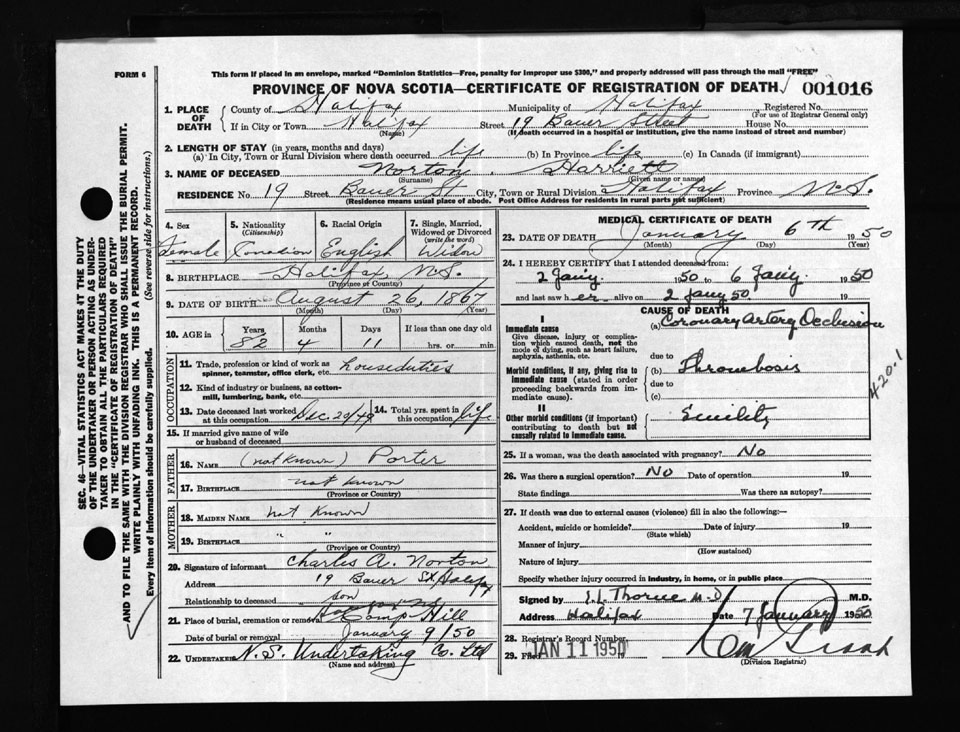 FORM 6
This form if placed in an envelope, marked "Dominion Statistics—Free, penalty for improper use $300," and properly addressed will pass through the mail "FREE"
PROVINCE OF NOVA SCOTIA—CERTIFICATE OF REGISTRATION OF DEATH 001016
1. PLACE OF DEATH
County of Halifax Municipality of Halifax Registered No.
(For use of Registrar General only)
If in City or Town Halifax Street 19 Bauer Street House No.
(Name) (If death occurred in a hospital or institution, give the name instead of street and number)
2. LENGTH OF STAY (in years, months and days)
(a) In City, Town or Rural Division where death occurred life (b) In Province life (c) In Canada (if immigrant)
3. NAME OF DECEASED Norton Harriett
(Surname) (Given name or names)
RESIDENCE No 19 Street Bauer St City, Town or Rural Division Halifax Province N.S.
(Residence means usual place of abode. Post Office Address for residents in rural parts not sufficient)
4. Sex Female
5. Nationality (Citizenship) Canadian
6. Racial Origin English
7. Single, Married, Widowed or Divorced (write the word) Widow
8. BIRTHPLACE Halifax, N.S.
(Province or Country)
9. DATE OF BIRTH August 26, 1867
(Month) (Day) (Year)
10. AGE in Years Months Days If less than one day old
82 4 11 hrs. or min.
OCCUPATION
11. Trade, profession or kind of work as spinner, teamster, office clerk, etc. houseduties
12. Kind of industry or business, as cotton-mill, lumbering, bank, etc.
13. Date deceased last worked at this occupation Dec 20/49
14. Total yrs. spent in this occupation life
15. If married give name of wife or husband of deceased
FATHER
16. NAME (not known) Porter
17. BIRTHPLACE not known
(Province or Country)
MOTHER
18. MAIDEN NAME not known
19. BIRTHPLACE " "
(Province or Country)
20. Signature of informant Charles A. Norton
Address 19 Bauer St Halifax
Relationship to deceased son
21. Place of burial, cremation or removal Camp Hill
Date of burial or removal January 9/50
22. UNDERTAKER N.S. Undertaking Co. Ltd
(Name and address)
MEDICAL CERTIFICATE OF DEATH
23. DATE OF DEATH January 6th 1950
(Month) (Day) (Year)
24. I HEREBY CERTIFY that I attended deceased from:
2 Jany. 1950 to 6 Jany. 1950
and last saw her alive on 2 Jany 50 19
CAUSE OF DEATH
I
Immediate cause
Give disease, injury or complication which caused death, not the mode of dying, such as heart failure, asphyxia, asthenia, etc.
(a) Coronary Artery Occlusion
due to
Morbid conditions, if any, giving rise to immediate cause (stated in order proceeding backwards from immediate cause).
(b) Thrombosis
due to
(c)
420.1
II
Other morbid conditions (if important) contributing to death but not causally related to immediate cause.
Senility
25. If a woman, was the death associated with pregnancy? No
26. Was there a surgical operation? No Date of operation 19
State findings Was there an autopsy?
27. If death was due to external causes (violence) fill in also the following:—
Accident, suicide or homicide? Date of injury 19
(State which)
Manner of injury
(How sustained)
Nature of injury
Specify whether injury occurred in industry, in home, or in public place
Signed by I. L. Thorne M.D. M.D.
Address Halifax Date 7 January 1950
28. Registrar's Record Number
29. Filed JAN 11 1950
(Division Registrar)
SEC. 46—VITAL STATISTICS ACT MAKES IT THE DUTY
OF THE UNDERTAKER OR PERSON ACTING AS UNDER-
TAKER TO OBTAIN ALL THE PARTICULARS REQUIRED
IN THE "CERTIFICATE OF REGISTRATION OF DEATH"
AND TO FILE THE SAME WITH THE DIVISION REGISTRAR WHO SHALL ISSUE THE BURIAL PERMIT.
WRITE PLAINLY WITH UNFADING INK. THIS IS A PERMANENT RECORD.
Every item of Information should be carefully supplied. (See reverse side for instructions.)